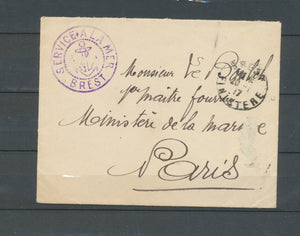 SERVICE A LA MER
BREST
Monsieur Le
maître fourrier
Ministère de la marine
Paris
17
FINISTERE